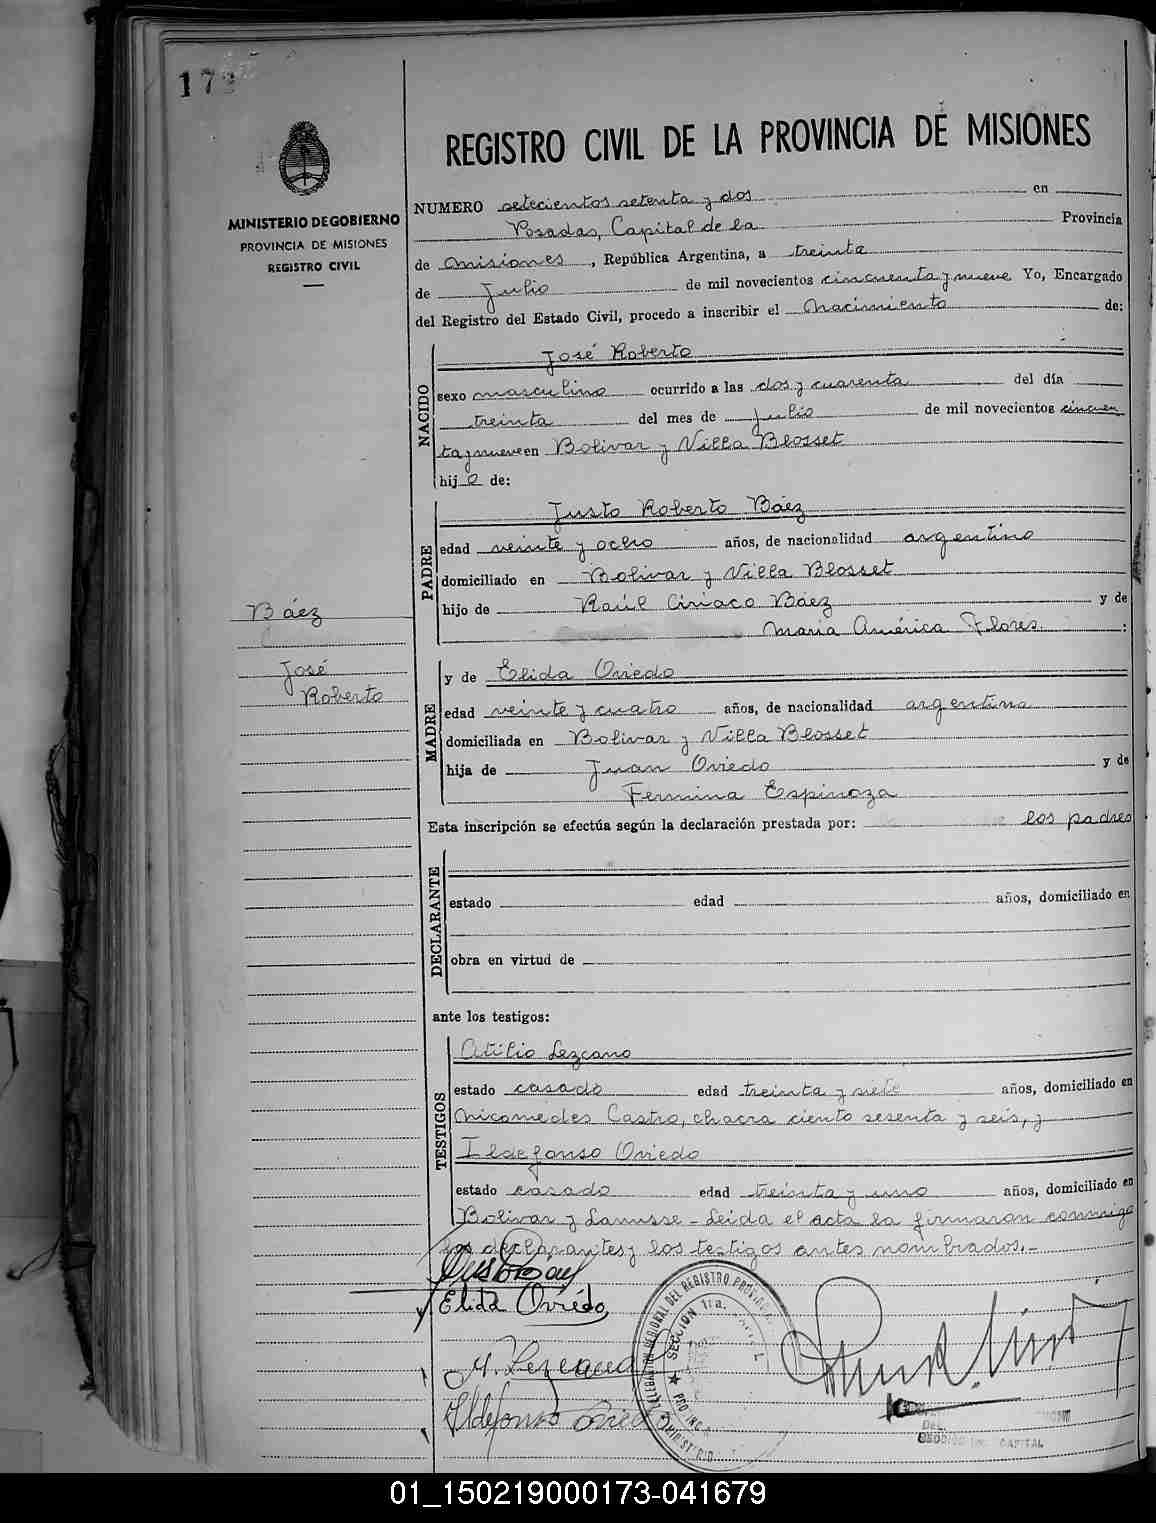 REGISTRO CIVIL DE LA PROVINCIA DE MISIONES
MINISTERIO DE GOBIERNO
PROVINCIA DE MISIONES
REGISTRO CIVIL
NUMERO setecientos setenta y dos en
Posadas, Capital de la Provincia
de Misiones, República Argentina, a treinta
de Julio de mil novecientos cincuenta y nueve Yo, Encargado
del Registro del Estado Civil, procedo a inscribir el Nacimiento de:
NACIDO
José Roberto
sexo masculino ocurrido a las dos y cuarenta del día
treinta del mes de Julio de mil novecientos cincuen
ta y nueve en Bolivar y Villa Blosset
hijo de:
PADRE
Justo Roberto Báez
edad veinte y ocho años, de nacionalidad argentino
domiciliado en Bolivar y Villa Blosset
hijo de Raúl Ciriaco Báez y de
Maria América Flores. :
Báez
José
Roberto
MADRE
y de Elida Oviedo
edad veinte y cuatro años, de nacionalidad argentina
domiciliada en Bolivar y Villa Blosset
hija de Juan Oviedo y de
Fermina Espinoza
Esta inscripción se efectúa según la declaración prestada por: los padres
DECLARANTE
estado edad años, domiciliado en
obra en virtud de
ante los testigos:
TESTIGOS
Atilio Lezcano
estado casado edad treinta y siete años, domiciliado en
Nicomedes Castro, chacra ciento sesenta y seis, y
Ildefonso Oviedo
estado casado edad treinta y uno años, domiciliado en
Bolivar y Lanusse - Leida el acta la firmaron conmigo
los declarantes y los testigos antes nombrados.-
Elida Oviedo
Ildefonso Oviedo
SECCION 1ra.
CAPITAL
01_150219000173-041679